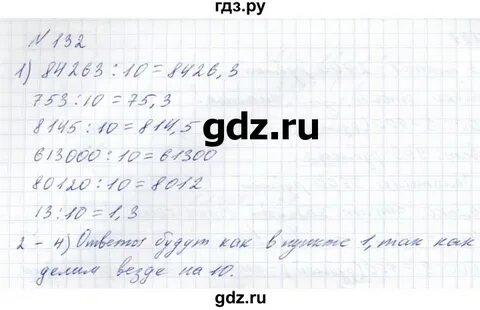 гдз.ру
N 132
1) 84263 : 10 = 8426,3
753 : 10 = 75,3
8145 : 10 = 814,5
gdz.ru
613000 : 10 = 61300
80120 : 10 = 8012
13 : 10 = 1,3
2 - 4) Ответы будут как в пункте 1, так как
делим везде на 10.
gdz.ru